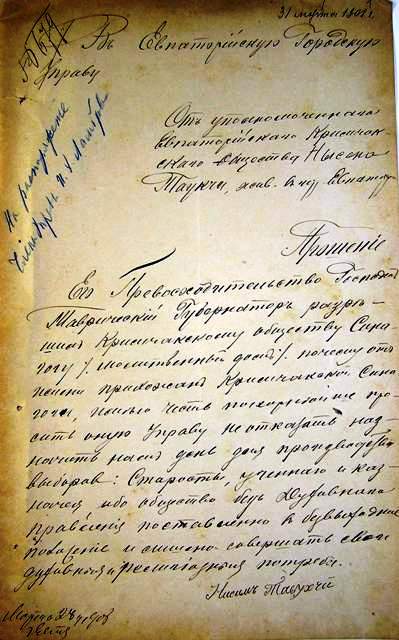 31 марта 190
Въ Евпаторійскую Городскую
Управу
На распоряженіе
Отъ уполномоченнаго
Евпаторійскаго Крымчак-
скаго общества Нысена
Таукчи, жив. въ гор. Евпаторіи
Прошеніе
Его Превосходительство Господинъ
Таврическій Губернаторъ разрѣ-
шилъ Крымчакскому обществу Сина-
гогу /молитвенный домъ/. почему отъ
имени прихожанъ Крымчакской Сина
гоги, имѣю честь покорнѣйше про-
сить оную Управу не отказать наз-
начить намъ день для производства
выборовъ: Старосты, ученаго и каз-
начея ибо общество безъ Духовнаго
правленія поставлено въ безвыходное
положеніе и лишено совершать свои
духовныя и религіозныя потребы.
Нисимъ
Марта 28